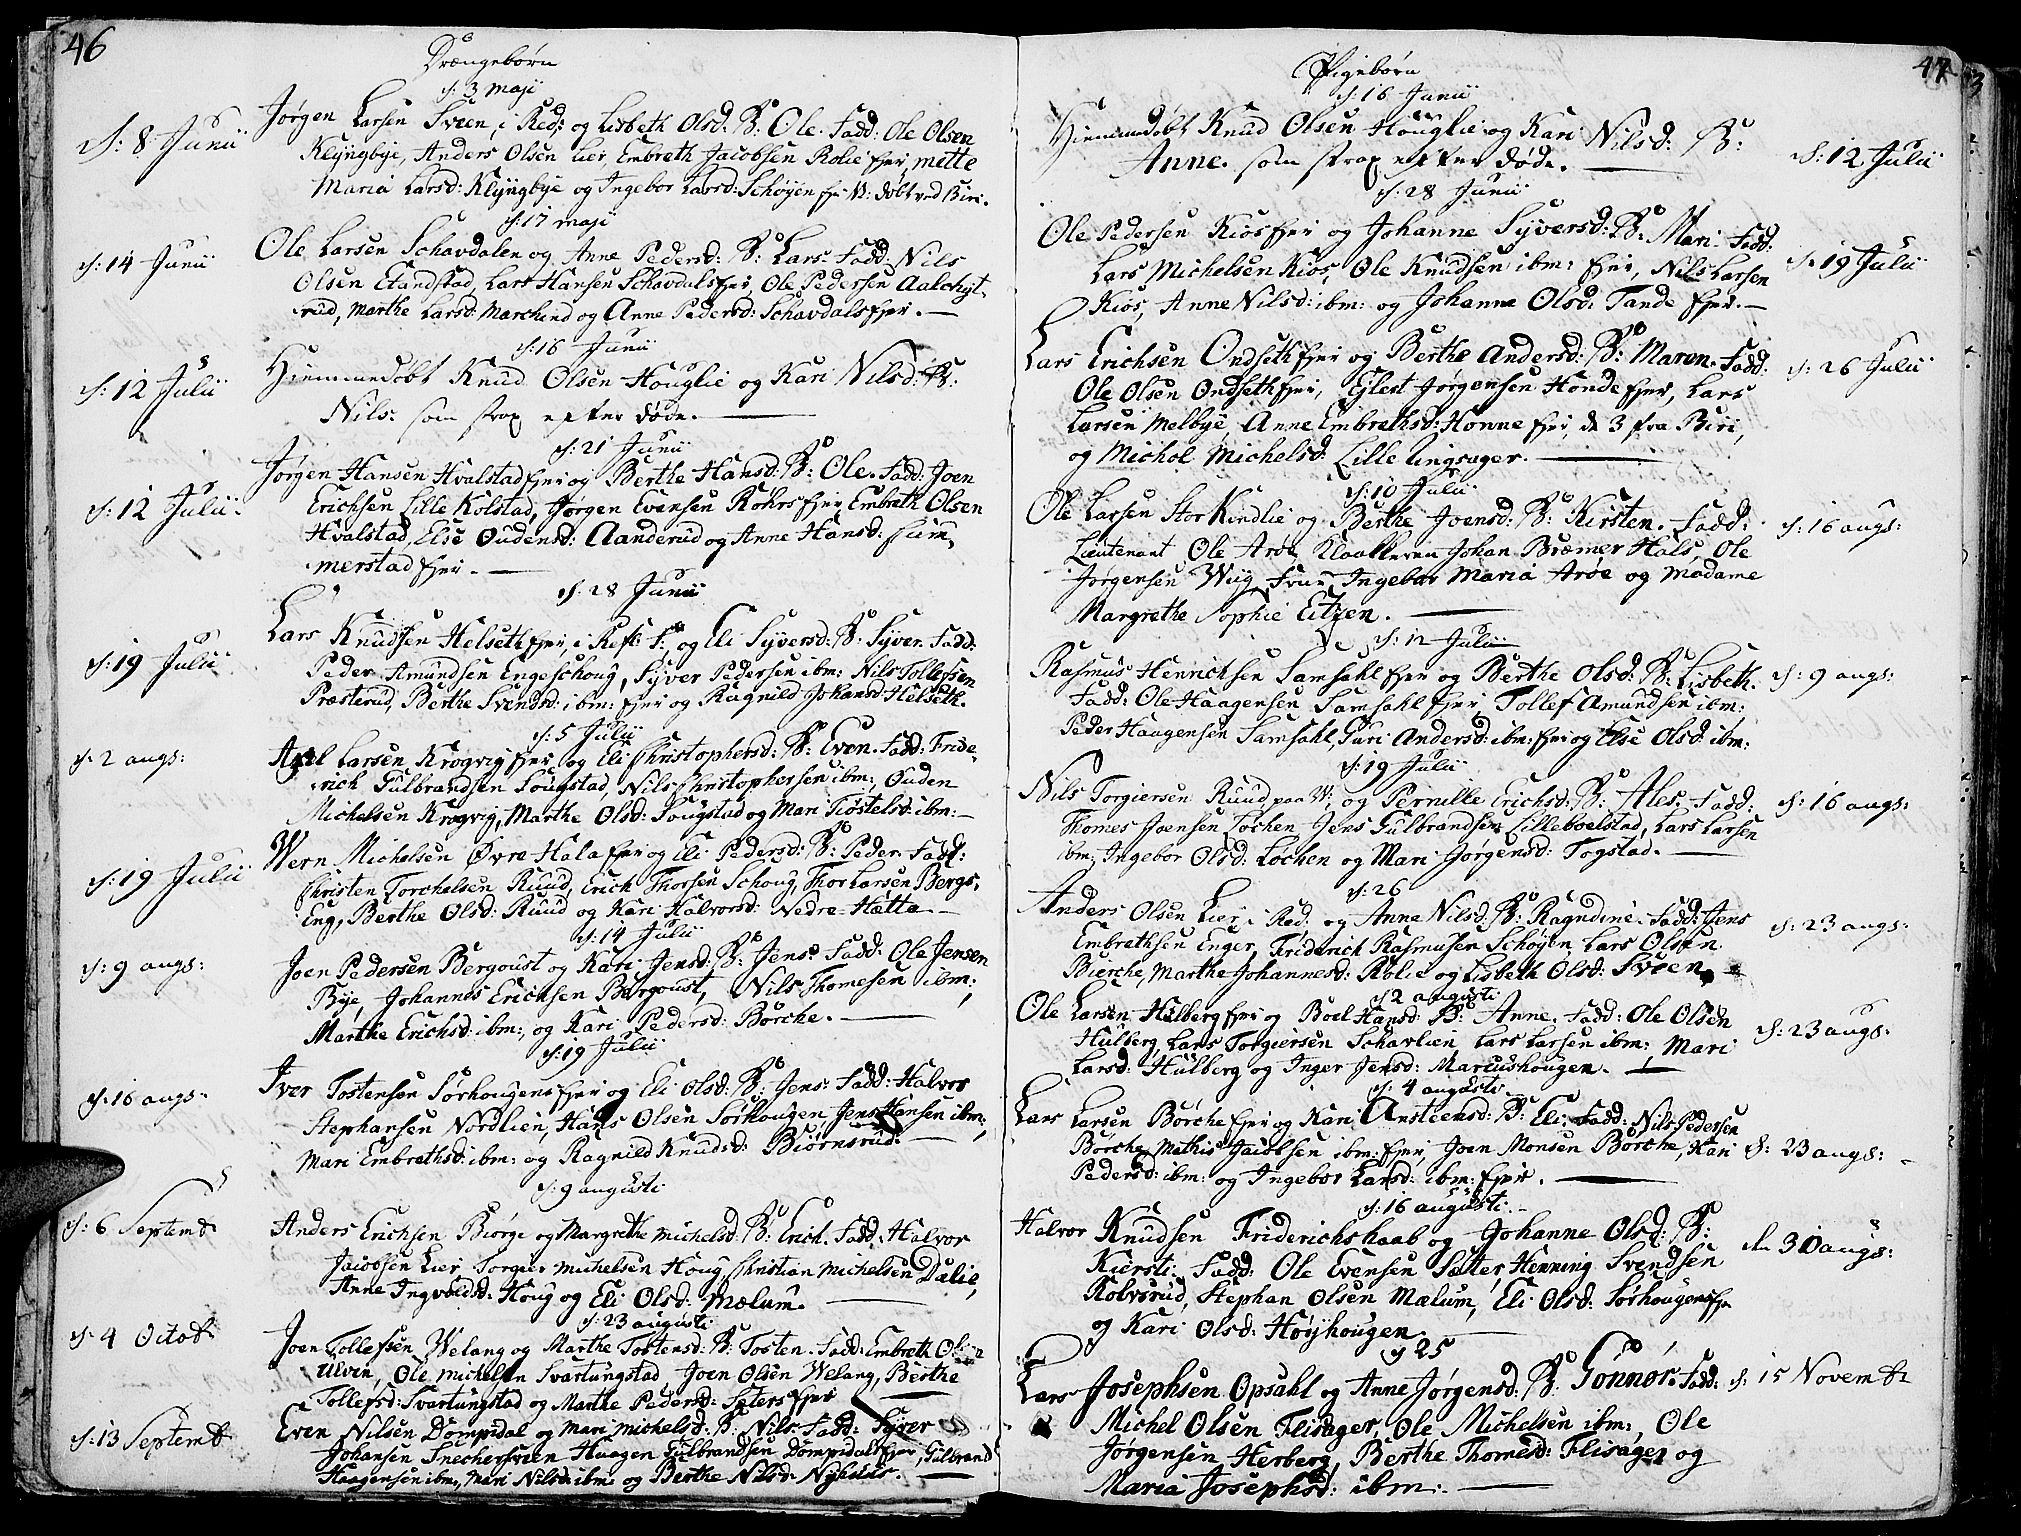 46
Drængebørn
d: 3 maji
d: 8 Junii
Jørgen Larsen Sveen, i Red: og Lisbeth Olsd. B: Ole. Fadd: Ole Olsen
Klÿngbÿe, Anders Olsen Lier, Embreth Jacobsen Rolie Ejer, mette
Maria Larsd: Klÿngbÿe og Ingebor Larsd: Schøÿen Ejer N: døbt ved Biri.
d: 17 maji
d: 14 Junii
Ole Larsen Schavdalen og Anne Pedersd: B: Lars Fadd: Nils
Olsen Standstad, Lars Hansen Schavdals Ejer, Ole Pedersen Aalchÿt
rud, Marthe Larsd: Marchend og Anne Pedersd: Schavdals Ejer. —
d: 16 Junii
d: 12 Julii
Hiemmedøbt Knud Olsen Houglie og Kari Nilsd: B:
Nils: som strax efter døde. —
d: 21 Junii
d: 12 Julii.
Jørgen Hansen Hvalstad Ejer og Berthe Hansd. B: Ole. Fadd: Joen
Erichsen Lille Kolstad, Jørgen Evensen Rohrs Ejer, Embreth Olsen
Hvalstad, Else Oudensd: Aanderud og Anne Hansd:
merstad Ejer. —
d. 28 Junii
d: 19 Julii
Lars Knudsen Helseth Ejer, i og Eli Sÿversd: B: Sÿver. Fadd:
Peder Amundsen Engeschoug, Sÿver Pedersen ibm: Nils Tollefsen
Præsterud, Berthe Svendsd: ibm: Ejer og Ragnild Johansd: Helseth.
d: 5 Julii
d: 2 augs:
Axel Larsen Krogvig Ejer og Eli Christophersd: B: Even. Fadd: Fride-
rich Gulbrandsen Sougstad, Nils Christophersen ibm:, Ouden
Michelsen Krogvig, Marthe Olsd: Sougstad og Mari Tiøstelsd: ibm: —
d: 19 Julii
Wern Michelsen Øvre Hala Ejer og Eli Pedersd: B: Peder. Fadd:
Christen Torchelsen Ruud, Erich Thorsen Schoug, Thor Larsen Bergs-
Eng, Berthe Olsd: Ruud og Kari Halvorsd: Nedre Hætta —
d: 14 Julii
d: 9 augs:
Joen Pedersen Bergoust og Kari Jensd: B: Jens: Fadd: Ole Jensen
Bÿe, Johannes Erichsen Bergoust, Nils Thomesen ibm:,
Marthe Erichsd: ibm:, og Kari Pedersd: Børche. —
d: 19 Julii
d. 16 augs.
Iver Tostensen Sørhougens Ejer og Eli Olsd: B: Jens: Fadd: Halvor
Stephansen Nordlien, Hans Olsen Sørhougen, Jens Hansen ibm:,
Mari Embrethsd: ibm: og Ragnild Knudsd: Biørnsrud. —
d. 9 augusti
d: 6 Septemb
Anders Erichsen Biørge og Margrethe Michelsd: B: Erich. Fadd: Halvor
Jacobsen Lier, Torgier Michelsen Houg, Christian Michelsen Dalie,
Anne Ingvoldsd: Houg og Eli Olsd: Mælum. —
d. 23 augusti
d: 4 Octob
Joen Tollefsen Welang og Marthe Tostensd: B: Tosten. Fadd: Embreth
Ulven, Ole Michelsen Svartungstad, Joen Olsen Welang, Berthe
Tollefsd: Svartungstad og Marthe Pedersd: Sæters Ejer —
d. 13 Septemb
Even Nilsen Dompidal og Mari Michelsd: B: Nils. Fadd: Sÿver
Johansen Snechersveen, Haagen Gulbrandsen Dompidals Ejer, Gulbrand
Haagensen ibm:, Mari Nilsd: ibm: og Berthe Nilsd: Nÿhuus. —
47
Pigebørn
d: 16 Junii
Hiemmedøbt Knud Olsen Houglie og Kari Nilsd: B:
Anne. som strax efter døde. —
d: 12 Julii
d: 28 Junii
Ole Pedersen Kiøs Ejer og Johanne Sÿversd: B: Mari Fadd:
Lars Michelsen Kiøs, Ole Knudsen ibm: Ejer, Nils Larsen
Kiøs, Anne Nilsd: ibm: og Johanne Olsd: Tande Ejer. —
d: 19 Julii
Lars Erichsen Ondseth Ejer og Berthe Andersd: B: Maren. Fadd:
Ole Olsen Ondseth Ejer, Ejlert Jørgensen Honde Ejer, Lars
Larsen Melbÿe, Anne Embrethsd: Honne Ejer, de 3 fra Biri,
og Michol Michelsd: Lille Ringsager. —
d: 26 Julii
d: 10 Julii
Ole Larsen Stor Kindlie og Berthe Joensd: B: Kirsten. Fadd:
Lieutenant Ole Arøe, Klocheren Johan Bræmer Hals, Ole
Jørgensen Wiig, Frue Ingebor Maria Arøe og Madame
Margrethe Sophie Eitzen. —
d: 16 augs:
d: 12 Julii
Rasmus Henrichsen Samsahl Ejer og Berthe Olsd: B: Lisbeth.
Fadd: Ole Haagensen Samsahl Ejer, Tollef Amundsen ibm:
Peder Haagensen Samsahl, Guri Andersd: ibm: Ejer og Else Olsd: ibm:
d: 9 augs:
d: 19 Julii
Nils Torgiersen Ruud paa W: og Pernille Erichsd: B: Ales. Fadd:
Thomes Joensen Løchen, Jens Gulbrandsen Lilleboelstad, Lars Larsen
ibm: Ingebor Olsd: Løchen og Mari Jørgensd: Togstad. —
d: 16 augs:
d: 26
Anders Olsen Lier i Red: og Anne Nilsd: B: Ragndine. Fadd: Jens
Embrethsen Enger, Friderich Rasmusen Schøÿen, Lars Olsen
Bierche, Marthe Johannesd: Rolie og Lisbeth Olsd: Sveen —
d: 23 augs:
d 2 augusti
Ole Larsen Hulberg Ejer og Boel Hansd: B: Anne. Fadd: Ole Olsen
Hulberg, Lars Torgiersen Schavlien, Lars Larsen ibm: Mari
Larsd: Hulberg og Inger Jensd: Marcushougen. —
d: 23 augs:
d: 4 augusti
Lars Larsen Børche Ejer og Kari Ansteensd: B: Eli. Fadd: Nils Pedersen
Børche, Mathis Jacobsen ibm: Ejer, Joen Monsen Børche, Kari
Pedersd: ibm: og Ingebor Larsd: ibm: Ejer. —
d: 23 augs: —
d: 16 augusti.
Halvor Knudsen Friderichshaab og Johanne Olsd: B:
Kiersti. Fadd: Ole Evensen Sætter, Henning Svendsen
Kolvsrud, Stephan Olsen Mælum, Eli Olsd: Sørhougens Ejer
og Kari Olsd: Høÿhougen. —
den 30 augs:
d 25
Lars Josephsen Opsahl og Anne Jørgensd: B: Gønnor. Fadd:
Michel Olsen Flisager, Ole Michelsen ibm:, Ole
Jørgensen Herberg, Berthe Thomesd: Flisager og
Maria Josephsd: ibm: —
d: 15 Novemb